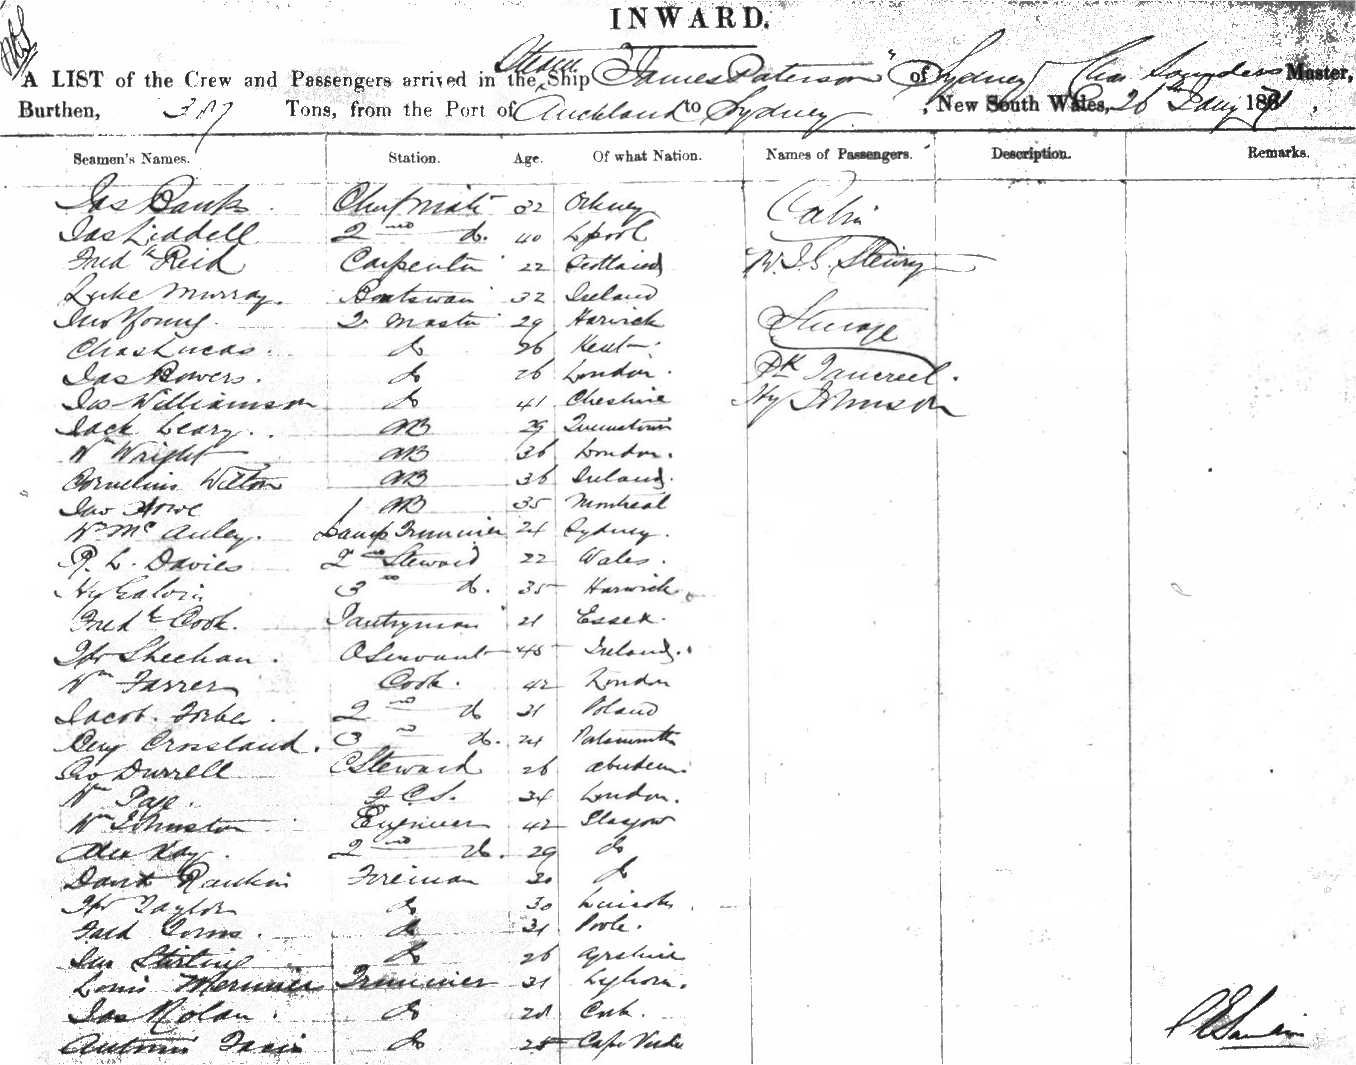 INWARD.
A LIST of the Crew and Passengers arrived in the Steam Ship "James Paterson" of Sydney Chas Saunders Master,
Burthen, 387 Tons, from the Port of Auckland to Sydney, New South Wales, 26th Jany 1871.
Seamen's Names. Station. Age. Of what Nation. Names of Passengers. Description. Remarks.
Jas Banks Chief Mate 32 Orkney Cabin
Jas Liddell 2nd do. 40 Lpool
Fredk Reid Carpenter 22 Scotland
Luke Murray. Boatswain 32 Ireland
Jno Young. Q Master 29 Harwick Steerage
Chas Lucas. do 26 Kent.
Jas Bowers. do 26 London. Pk Tancred.
Jos Williamson do 41 Cheshire Hy Johnson
Jack Leary. AB 29 Queenstown
Wm Wright AB 36 London.
Cornelius Wilton AB 36 Ireland.
Jno Howe AB 35 Montreal
Wm McAuley. Lamp Trimmer 24 Sydney.
R. L. Davies 2nd Steward 22 Wales.
Hy Galvin 3rd do. 35 Harwick
Fredk Cook. Pantryman 21 Essex.
Thos Sheehan. O Servant 45 Ireland.
Wm Farrer Cook. 42 London
Jacob. 2nd do 31 Poland
Benj Crossland. 3rd do. 24 Portsmouth
Geo Durrell C Steward 26 Aberdeen.
Wm Page. F.C.S. 34 London.
Wm Johnston Engineer 42 Glasgow
Alex Kay. 2nd do. 29 do
David Rankin Fireman 30 do
Thos Taylor do 30 Lincoln
Fred do 31 Poole.
Jno Stirling do 26 Ayrshire
Louis Trimmer 31 Leghorn.
Jas Nolan. do 28 Cork.
do 25 Cape Verde